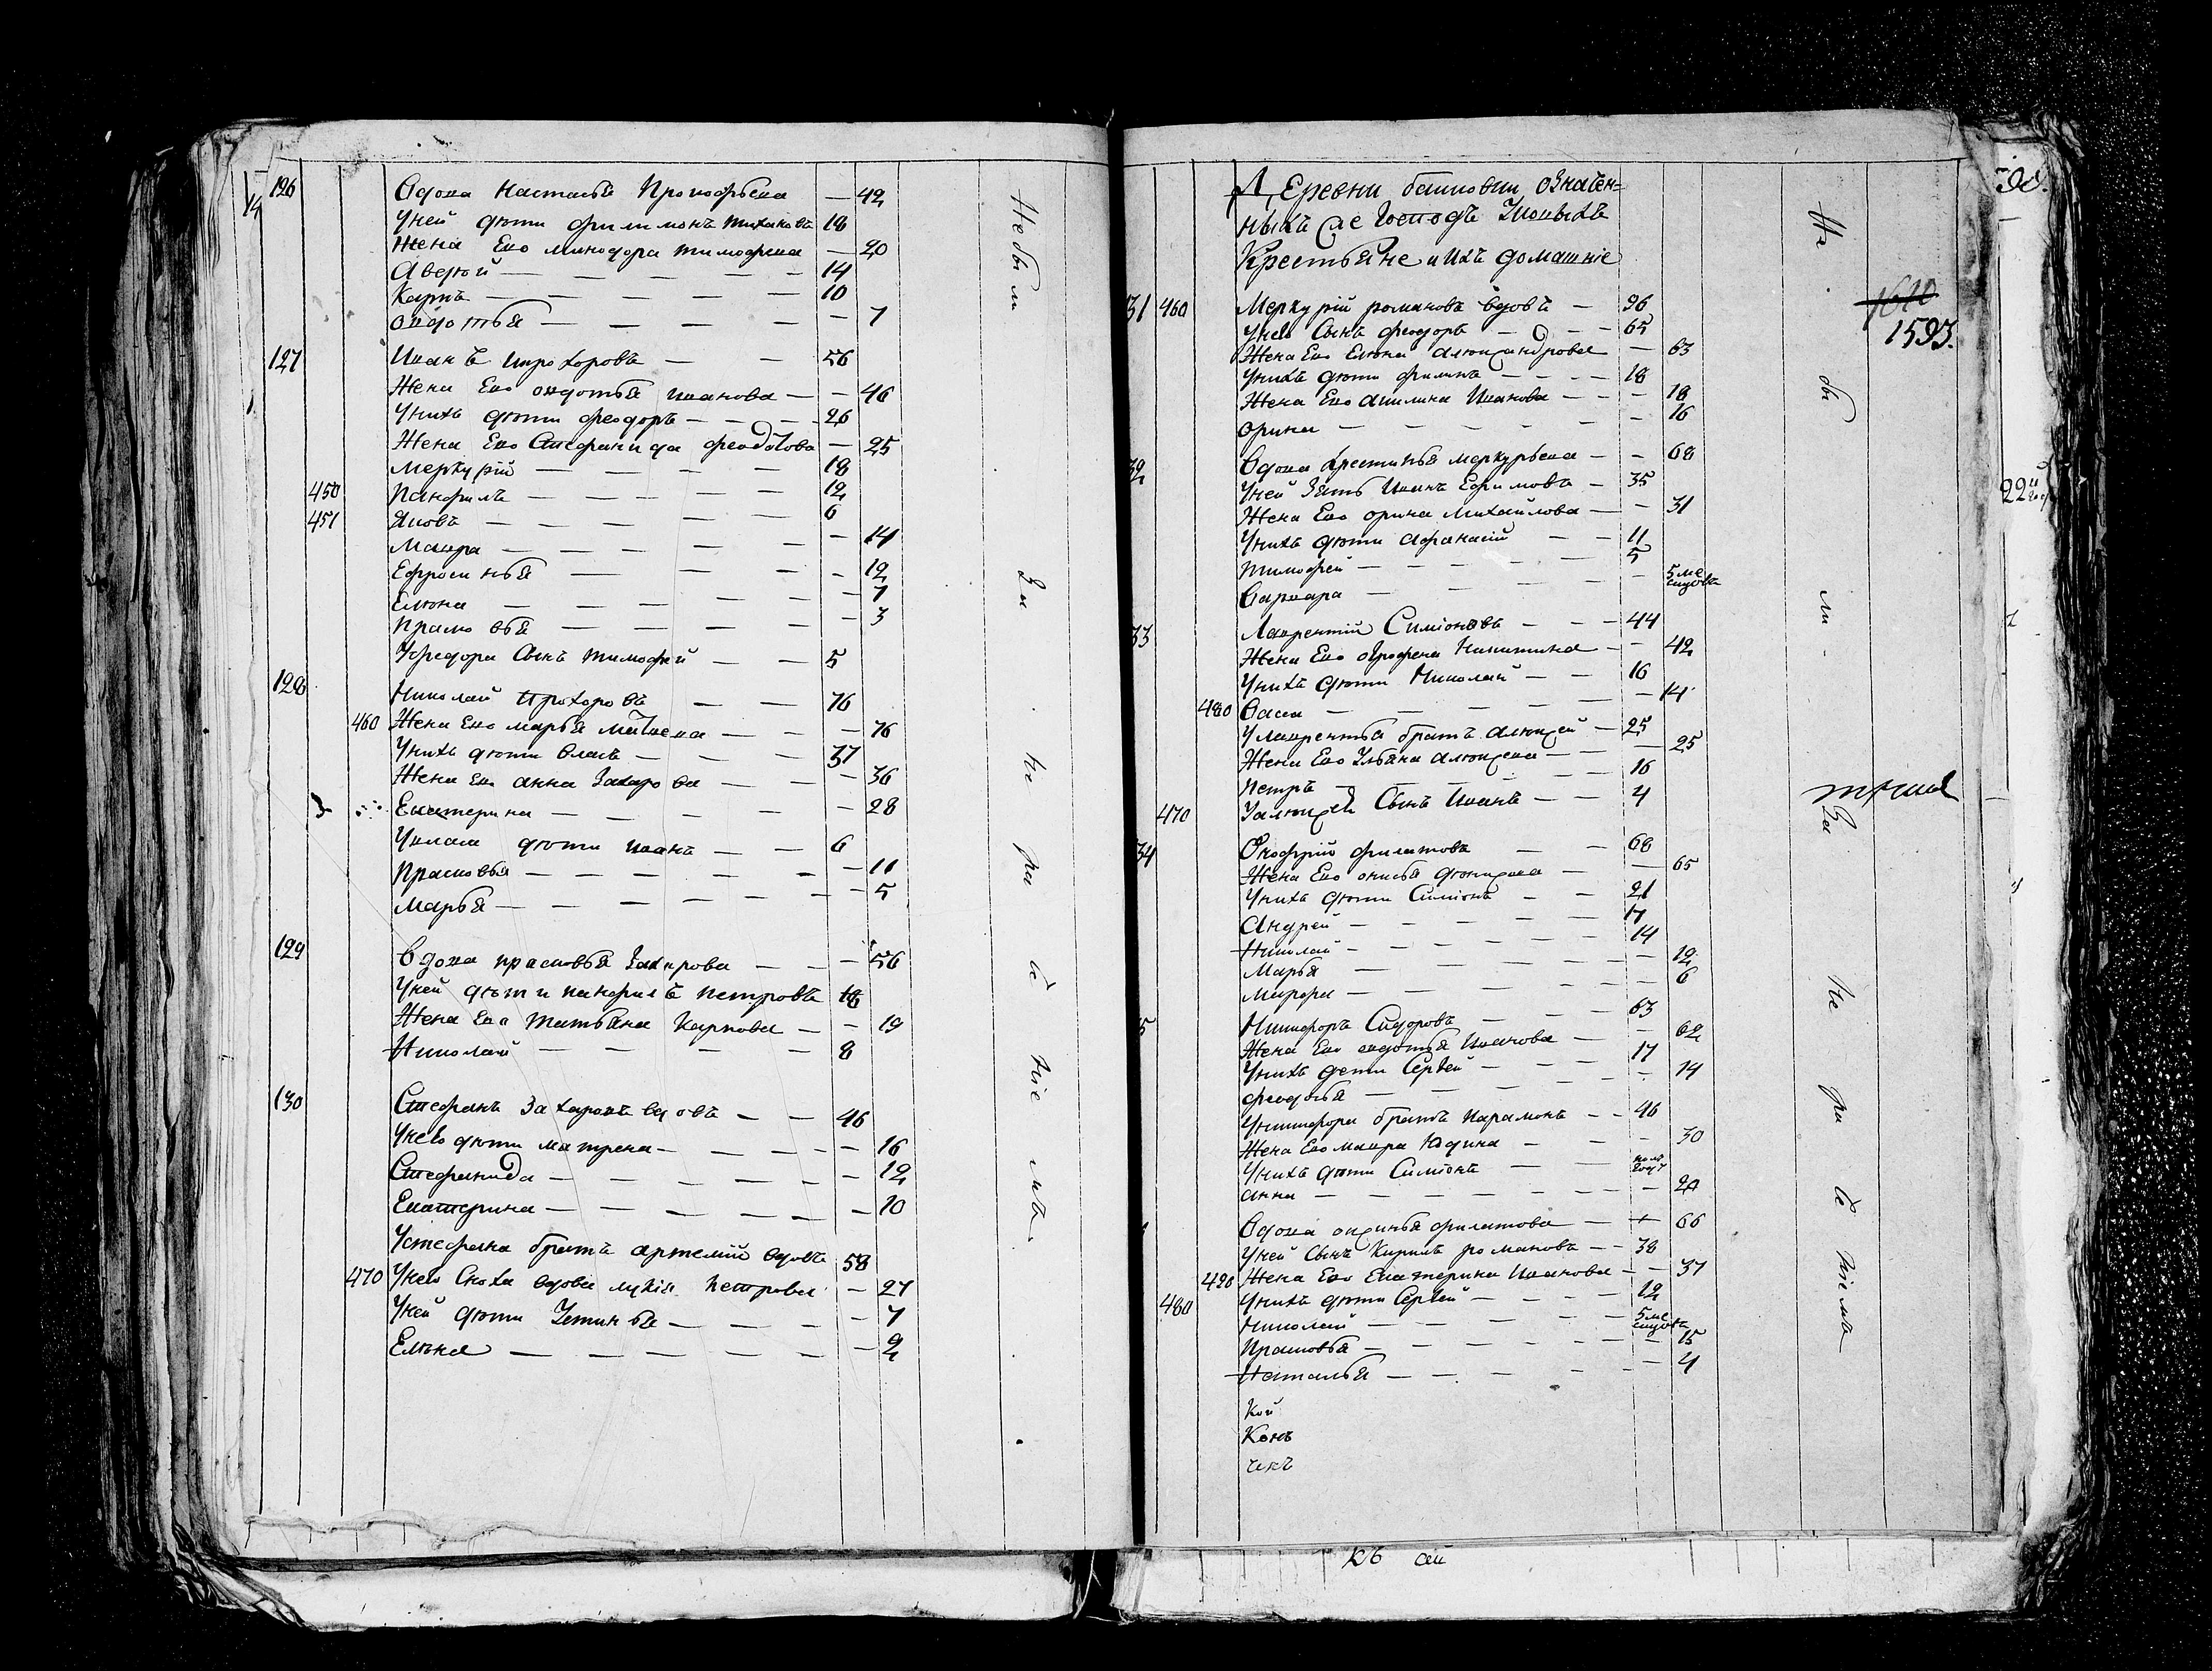 126 Вдова наталья Прокофьева — 42
Унея дѣти филимонъ тихановъ 18
Жена Ево минодора тимофѣева — 20
Аверкей — 14
Карпъ — 10
овдотья — 7
127 Иванъ прохоровъ — 56
Жена Ево овдотья иванова — 46
Унихъ дѣти феодоръ — 26
Жена Ево Стефанида феодотова — 25
Меркурiй — 18
450 Панфилъ — 12
451 Яковъ — 6
Мавра — 14
Ефросинья — 12
Елѣна — 7
Прасковья — 3
Уфедора Сынъ тимофей — 5
128 Николай Прохоровъ — 76
460 Жена Ево марья матвева — 76
Унихъ дѣти власъ — 37
Жена Ево анна Захарова — 36
Екатерина — 28
Увласа дѣти иванъ — 6
Прасковья — 11
Марья — 5
129 Вдова прасковья Захарова — 56
Унея дѣти панфилъ петровъ 18
Жена Ево Татьяна Карпова — 19
Николай — 8
130 Стефанъ Захаровъ вдовъ — 46
Унево дѣти матрена — 16
Стефанида — 12
Екатерина — 10
Устефана братъ артемiй вдовъ 58
470 Унево Сноха вдова лукiя петрова — 27
Унея дѣти Устинья — 7
Елѣна — 2
Небыли За нерачениемъ
Деревни башовки означен=
ныхъ Господъ
Крестьяне и ихъ домашнiе
1610
1593.
31 460 Меркурiй романовъ вдовъ — 96
Унево Сынъ феодоръ — 65
Жена Ево Елена алеѯандрова — 63
Унихъ дѣти филипъ — 18
Жена Ево акилина Иванова — 18
орина — 16
32 Вдова Христинья меркурьева — 68
Унея Зять Иванъ Ефимовъ — 35
Жена Ево орина Михайлова — 31
Унихъ дѣти афанасiй — 11
Тимофей — 5
Варвара — 5 месяцовъ
33 Лаврентiй Симiоновъ — 44
Жена Ево огрофена Никитина — 42
Унихъ дѣти Николай — 16
480 Васса — 14
Улаврентья братъ алеѯей — 25
Жена Ево Ульяна алеѯеева — 25
Петръ — 16
470 Уалеѯея Сынъ Иванъ — 4
34 Онофрiй филатовъ — 68
Жена Ево — 65
Унихъ дѣти Симiонъ — 21
Андрей — 17
Николай — 14
Марья — 12
Марфа — 6
5 Никифоръ Сидоровъ — 63
Жена Ево овдотья Иванова — 62
Унихъ дети Сергей — 17
феодосья — 14
Уникифора братъ парамонъ — 46
Жена Ево мавра Юдина — 30
Унихъ дѣти Симiонъ — полъ года
анна — 20
Вдова овдинья филатова — 66
Унея Сынъ Кирила романовъ — 38
490 Жена Ево Екатерина Иванова — 37
480 Унихъ дѣти Сергей — 12
Николай — 5 месяцовъ
Прасковья — 15
Наталья — 4
Небыли
За нерачениемъ
Кой
Конъ
къ